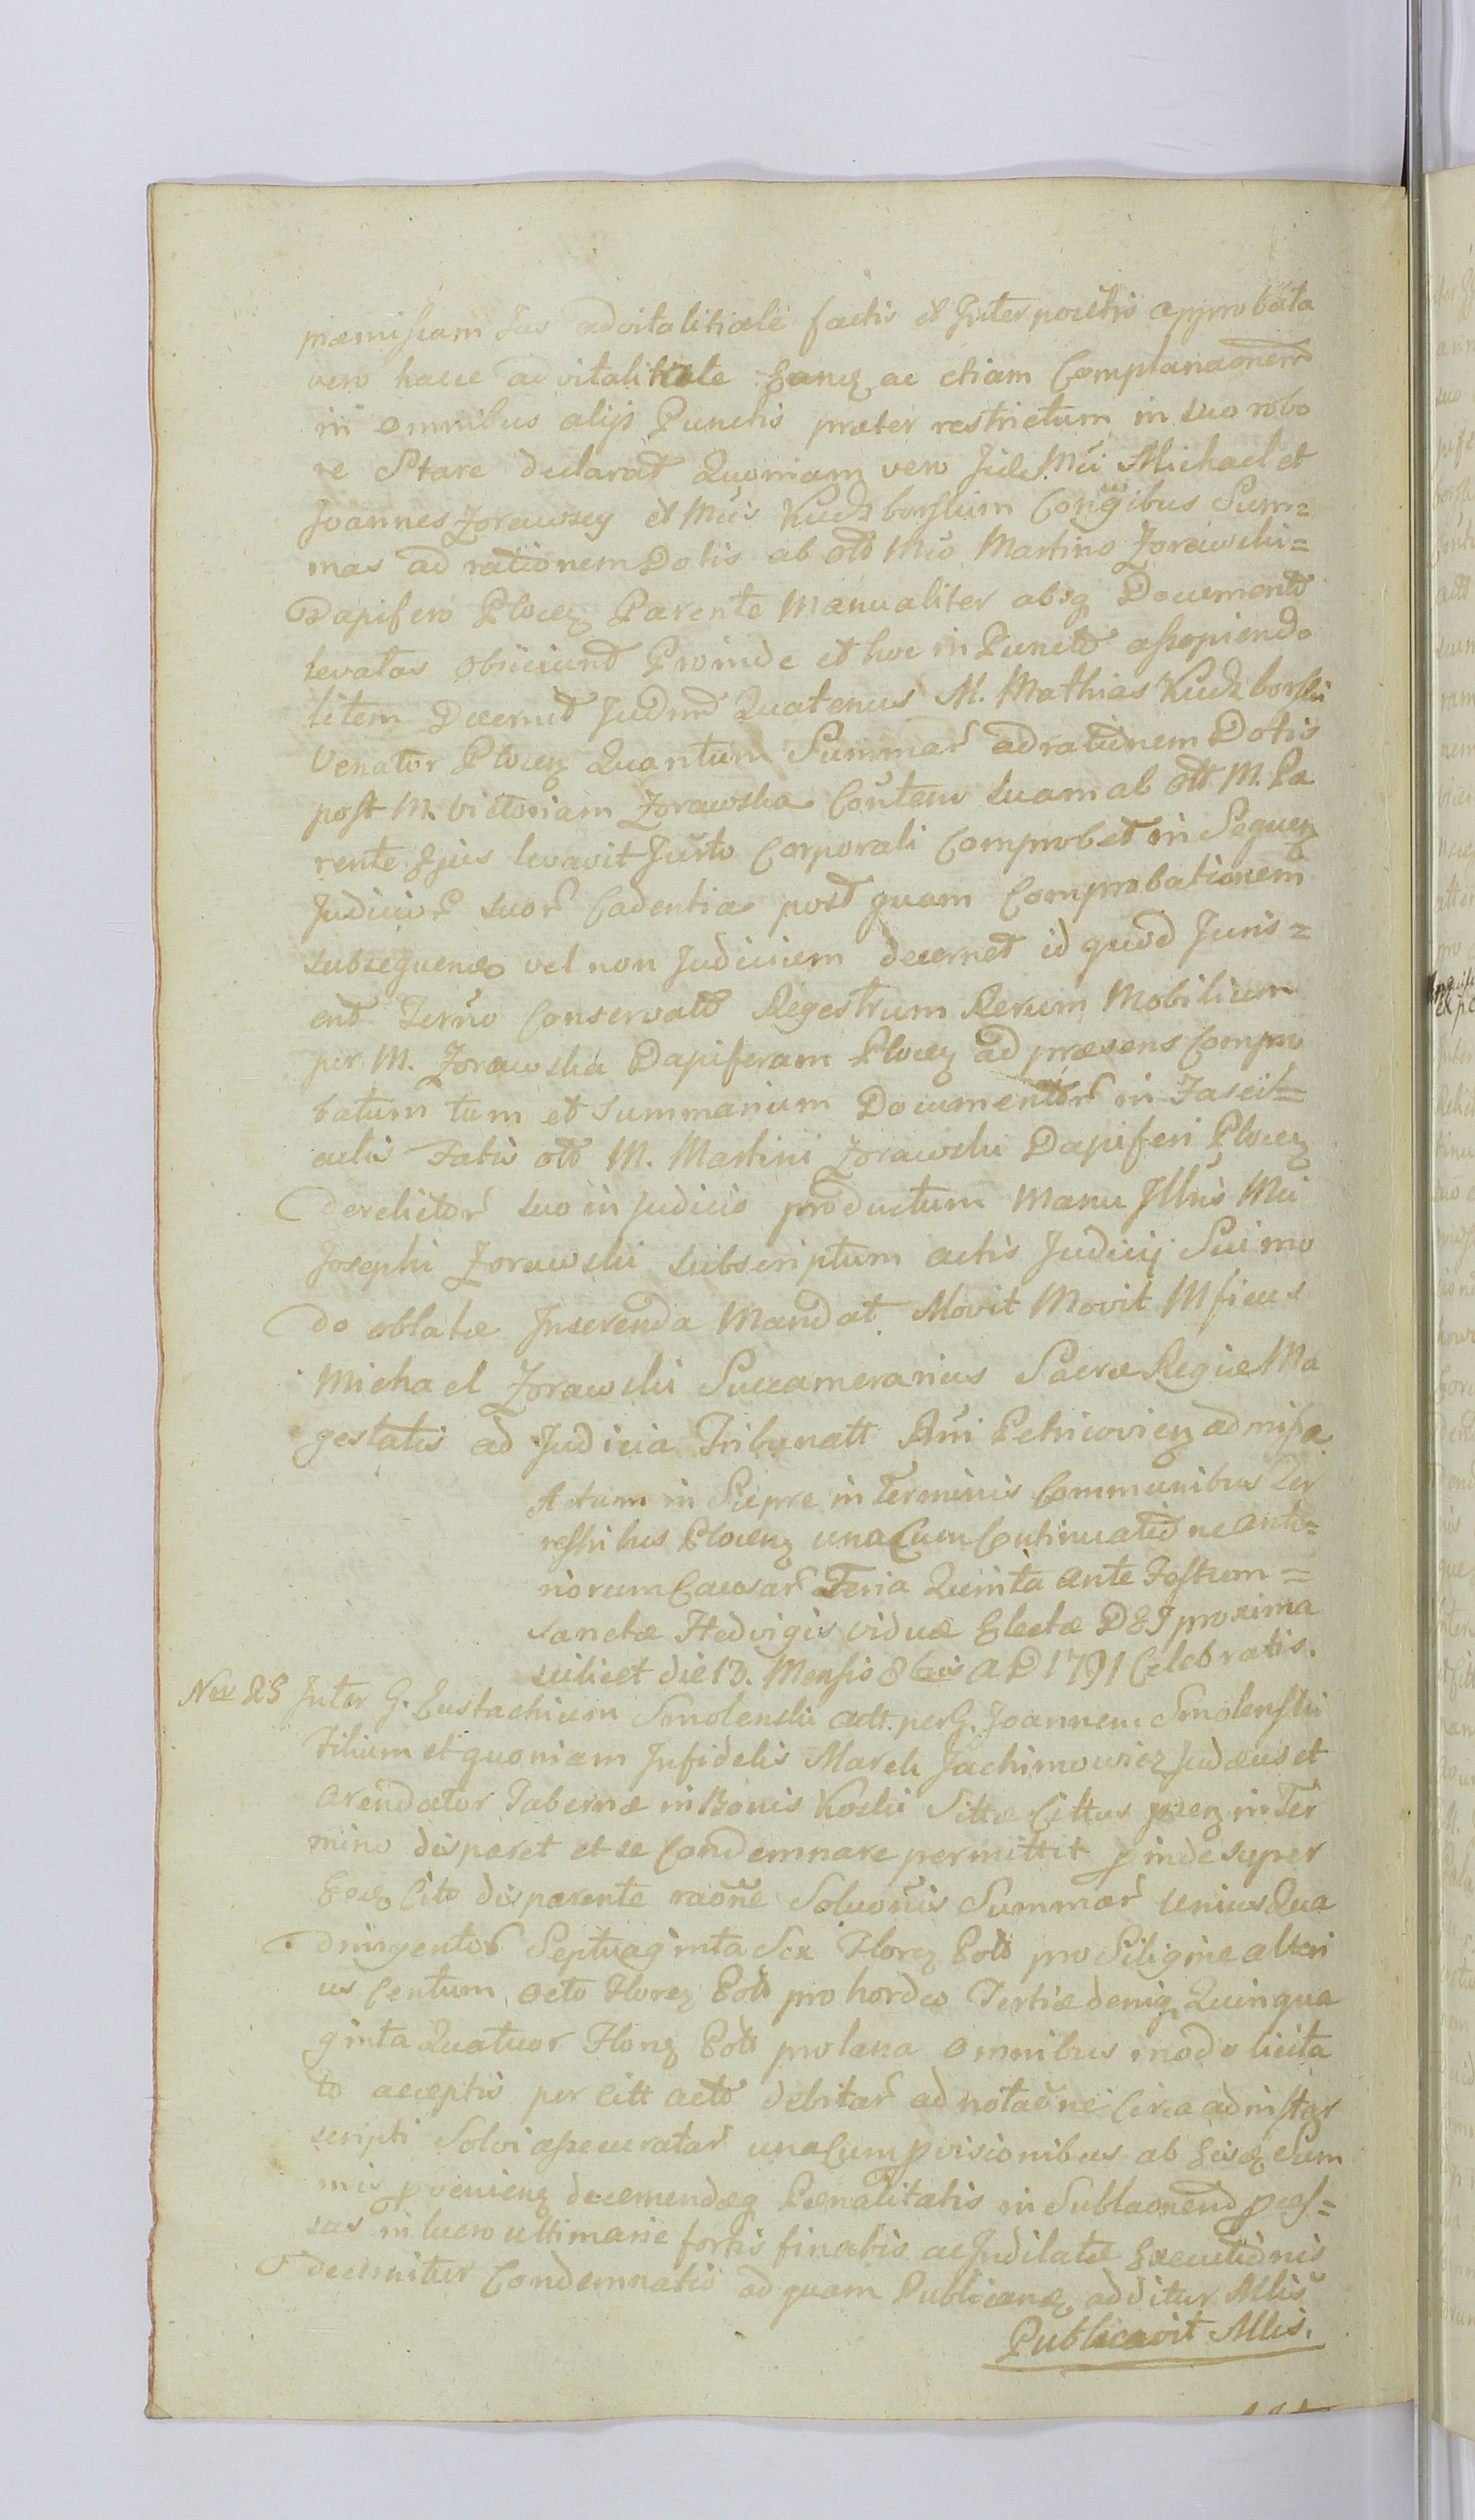 præmissam Jus advitalitiale factis et Interpositis approbata
vero hacce advitalitiate Eanq ac etiam Complanaonem
in omnibus alijs Punctis præter restrictum in suo robo
re Stare declarat Quoniam vero Mci Michael et
Joannes Zorawscy et Mcis Kuczborskim Congibus Sum=
mas ad rationem Dotis ab olo Mco Martino Zorawski=
Dapifero Plocen Parente Manualiter absq Documento
levatas obiiciunt Proinde et hoc in Puncto assopiendo
litem Decernit Judm Quatenus M. Mathias Kuczborski
Venator Plocen Quantum Summar ad rationem Dotis
post M. Victoriam Zorawska Contem suam ab olo M. Pa
rente Ejus levavit Jurto Corporali Comprobet in Sequen
Judicior suor Cadentia post quam Comprobationem
subsequen vel non Judicium decernet id quod Juris=
erit Termo Conservato Regestrum Rerum Mobilium
per M. Zorawska Dapiferam Plocen ad præsens Compro
batum tum et Summarium Documentor in Fascit=
culis Fatis olo M. Martini Zorawski Dapiferi Plocen
derelictor suo in Judicio productum Manu Illris Mci
Josephi Zorawski subscriptum actis Judicij Sui mo
do oblatæ Inserenda Mandat Movit Movit Mficus
Michael Zorawski Succamerarius Sacræ Regiæ Ma
gestatis ad Judicia Tribunatt Rni Petricovien admissa
Actum in Sierpre in Terminis Communibus Ter
restribus Plocen una Cum Continuatione Ante=
riorum Causar Feria Quinta ante Festum=
Sanctæ Hedvigis viduæ Electæ DEI proxima
scilicet die 13. Mensis 8bris A D 1791 Celebratis.
Nro 25 Inter G. Eustachium Smolenski actt. per G. Joannem Smolenski
Filium et quoniam Infidelis Marek Jachimowicz Judæus et
Arendator Tabernæ in Bonis Koski Sittæ Cittus præn in Ter
mino disparet et se Condemnare permittit pinde super
Eodq Cito disparente raone Soluonis Summar unius Qua
dringentor Septuaginta Sex Floren Polo pro Siligine alteri
us Centum Octo Floren Polo pro hordeo Tertiæ deniq Quinqua
ginta Quatuor Floren Polo pro lana omnibus modo licita
to acceptis per Citt acto debitar ad notaone Circa ad instar
scripti Solvi assecuratar una Cum pvisionibus ab Eisq Sum
mis pvenien decernendæq Pœnalitatis in Sublaonem pces=
sus in lucro ultimarie fortis finalis ac Indilatæ Executionis
decernitur Condemnatio ad quam Publicand additur Mlis
Publicavit Mlis.